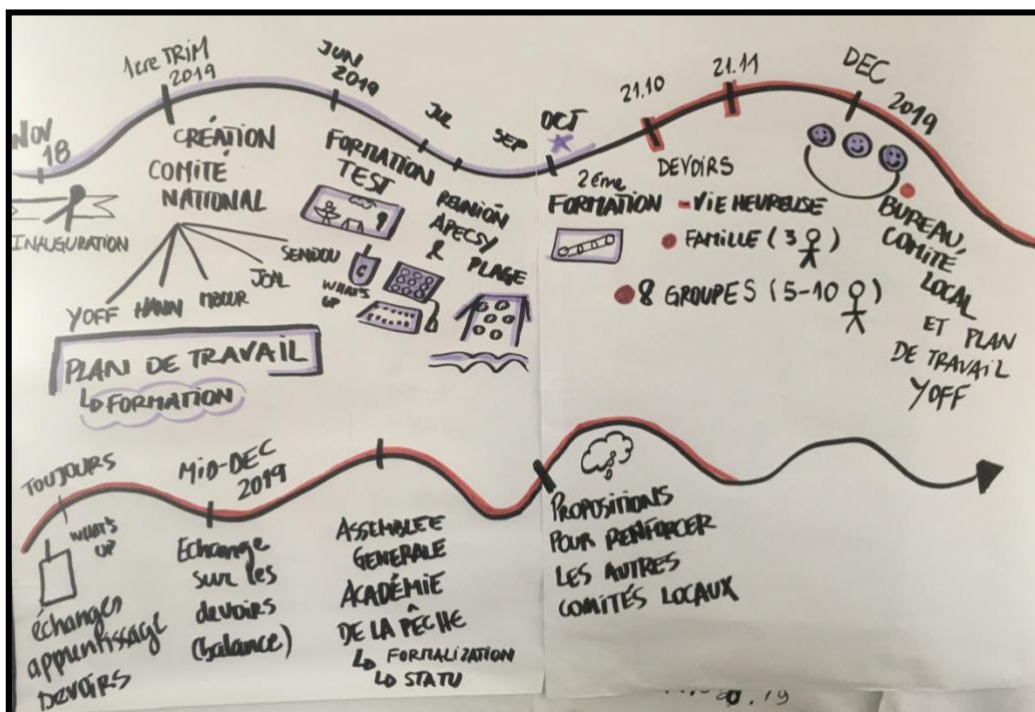 NOV
18
INAUGURATION
1ere TRIM
2019
CRÉATION
COMITÉ
NATIONAL
YOFF
HANN
MBOUR
JOAL
SENDOU
PLAN DE TRAVAIL
FORMATION
JUN
2019
FORMATION
TEST
C
WHAT'S
UP
JUL
SEP
REUNIÓN
APECSY
&
PLAGE
OCT
2éme
FORMATION
21.10
21.11
DEVOIRS
- VIE HEUREUSE
FAMILLE (3
)
8 GROUPES (5-10
)
DEC
2019
BUREAU,
COMITÉ
LOCAL
ET PLAN
DE TRAVAIL
YOFF
TOUJOURS
WHAT'S
UP
échanges
apprentissage
DEVOIRS
MID-DEC
2019
Echange
sur les
devoirs
(balance)
ASSEMBLEE
GENERALE
ACADÉMIE
DE LA PÊCHE
FORMALIZATION
STATU
PROPOSITIONS
POUR RENFORCER
LES AUTRES
COMITÉS LOCAUX
.19